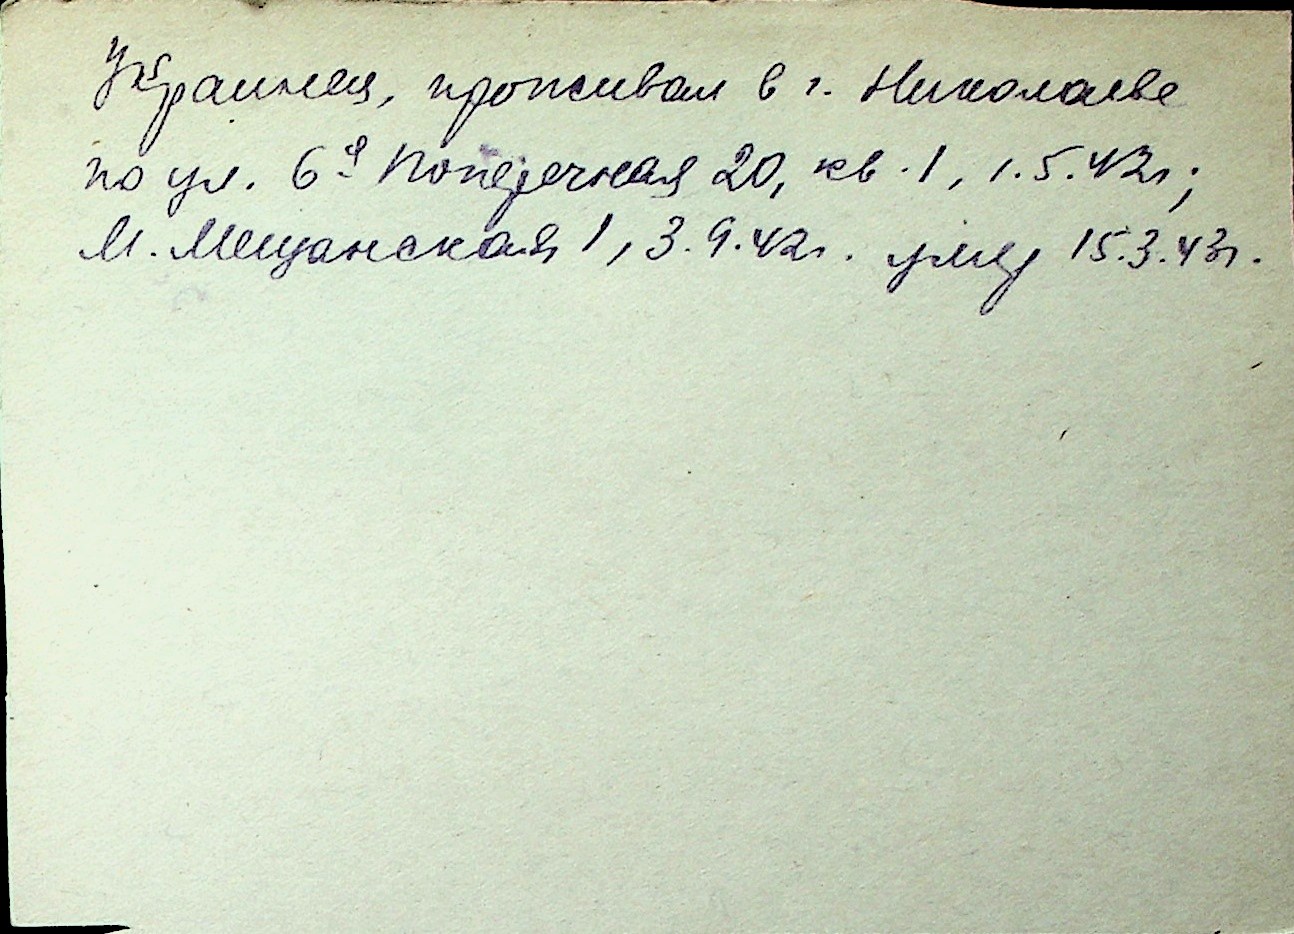 Украинец, проживал в г. Николаеве
по ул. 6я Поперечная 20, кв. 1, 1.5.42г;
М. Мещанская 1, 3.9.42г. умер 15.3.43г.